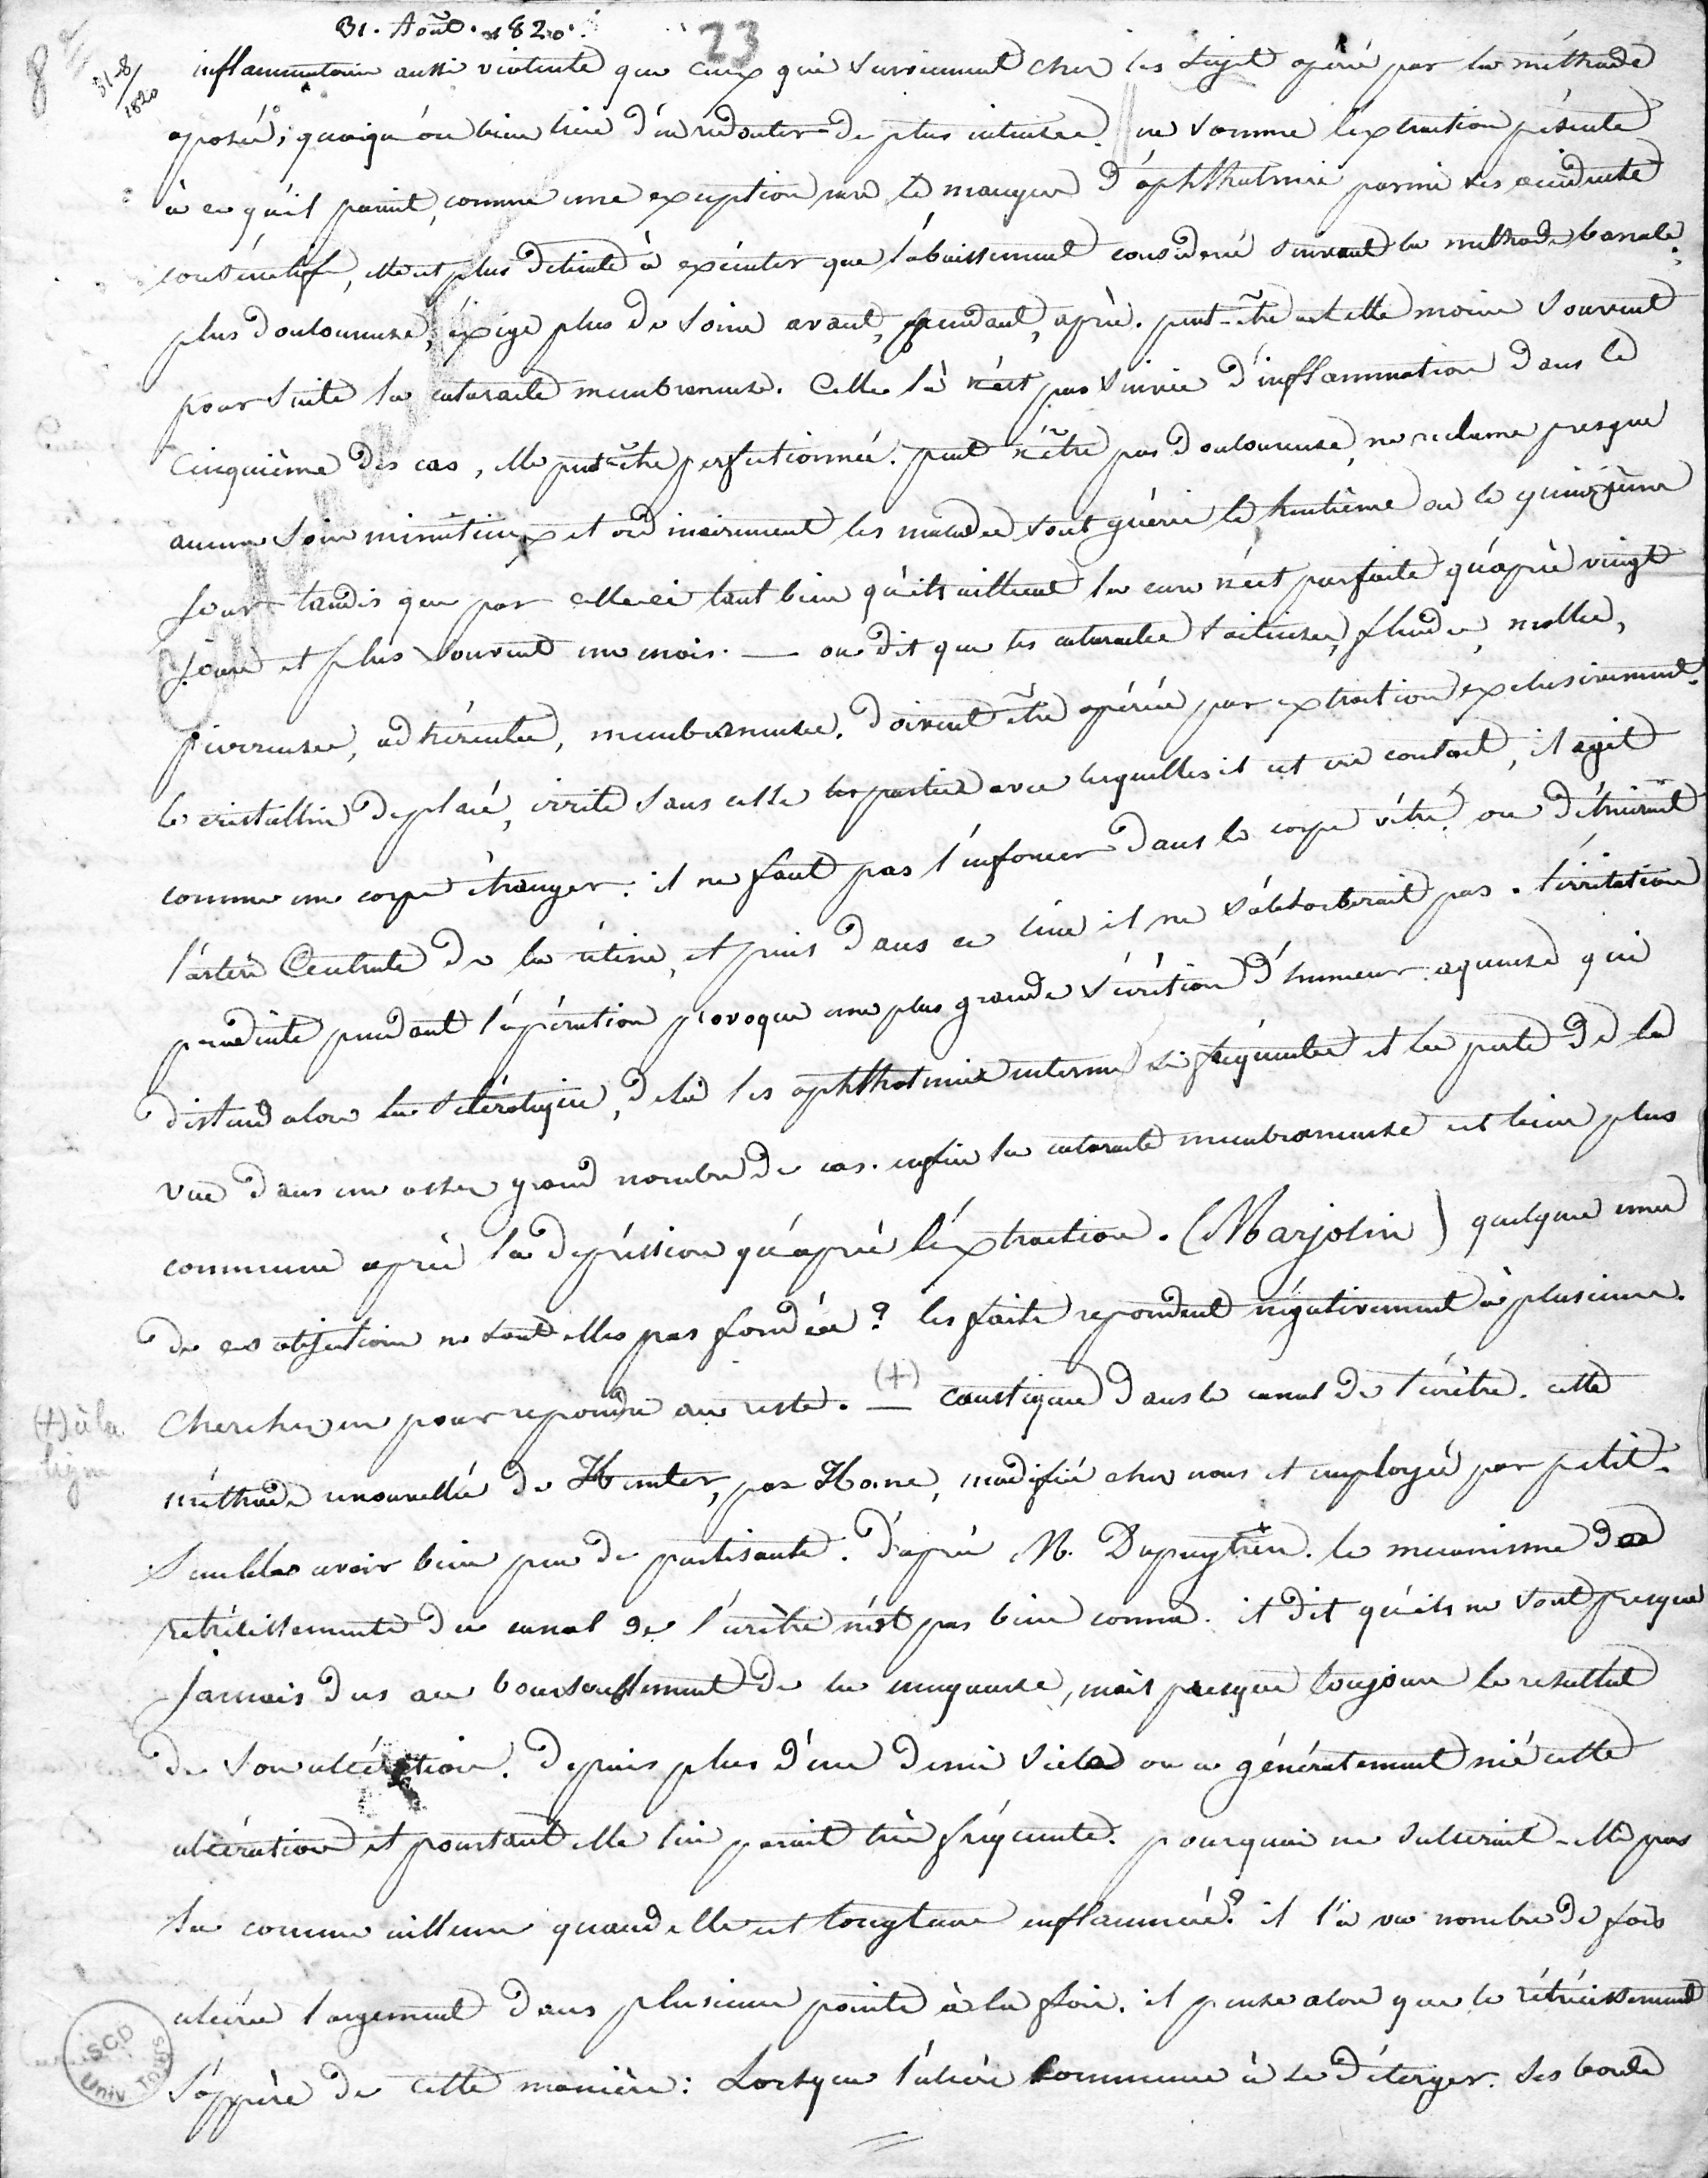 31. Août. 1820.
23
8
31-8/1820
inflammatoires aussi violents que ceux qui surviennent chez les sujets opérés par la méthode
oposée; quoiqu'on bien lieu d'en redouter de plus intenses. en somme l'extraction présente
à ce qu'il parait, comme une exception rare le manque d'ophthalmie parmi ses accidents
consécutifs, elle est plus délicate à exécuter que l'abaissement considéré suivant la méthode banale,
plus douloureuse, éxige plus de soins avant, pendant, après. peut-être a-t-elle moins souvent
pour suite la cataracte membraneuse. Celle là n'est pas suivie d'inflammation dans le
Cinquième des cas, elle peut-être perfectionnée. peut n'être pas douloureuse, ne reclame presque
aucun soin minutieux et ordinairement les malades sont guéris le huitième ou le quinzième
Jour tandis que par celle ci tant bien qu'ils aillent la cure n'est parfaite qu'après vingt
Jours et plus souvent un mois. — on dit que les cataractes laiteuses, fluides, molles,
pierreuses, adhérentes, membraneuses. doivent être opérées par extraction exclusivement.
le cristallin déplacé, irrite sans cesse les parties avec lesquelles il est en contact, il agit
comme un corps étranger: il ne faut pas l'enfoncer dans le corps vitré, on détruirait
l'artère Centrale de la rétine, et puis dans ce lieu il ne s'absorberait pas. l'irritation
produite pendant l'opération provoque une plus grande sécrétion d'humeur aqueuse qui
distend alors la sclérotique, delà les ophthalmies internes si fréquentes et la perte de la
vue dans un assez grand nombre de cas. enfin la cataracte membraneuse est bien plus
commune après la dépression qu'après l'extraction. (Marjolin) quelques unes
de ces objections ne sont elles pas fondées? les faits repondent négativement à plusieurs.
Chercher en pour repondre au reste. (+) — caustique dans le canal de l'urètre. cette
(+) à la ligne
méthode renouvellée de Hunter, par Home, modifiée chez nous et employée par petit.
Semble avoir bien peu de partisants. d'après M. Dupuytren. le mecanisme des
rétrécissements du canal de l'urètre n'est pas bien connu. il dit qu'ils ne sont presque
Jamais dus au boursouflement de la muqueuse, mais presque toujours le resultat
de son ulcération. depuis plus d'un demi siècle on a généralement nié cette
ulcération et pourtant elle lui parait très fréquente. pourquoi ne s'ulcerait-elle pas
la comme ailleurs quand elle est longtems enflammée? il l'a vu nombre de fois
ulcérée largement dans plusieurs points à la fois. il pense alors que le rétrécissement
s'oppère de cette manière: Lorsque l'ulcère commence à se déterger. ses bords
SCD
Univ. Tours